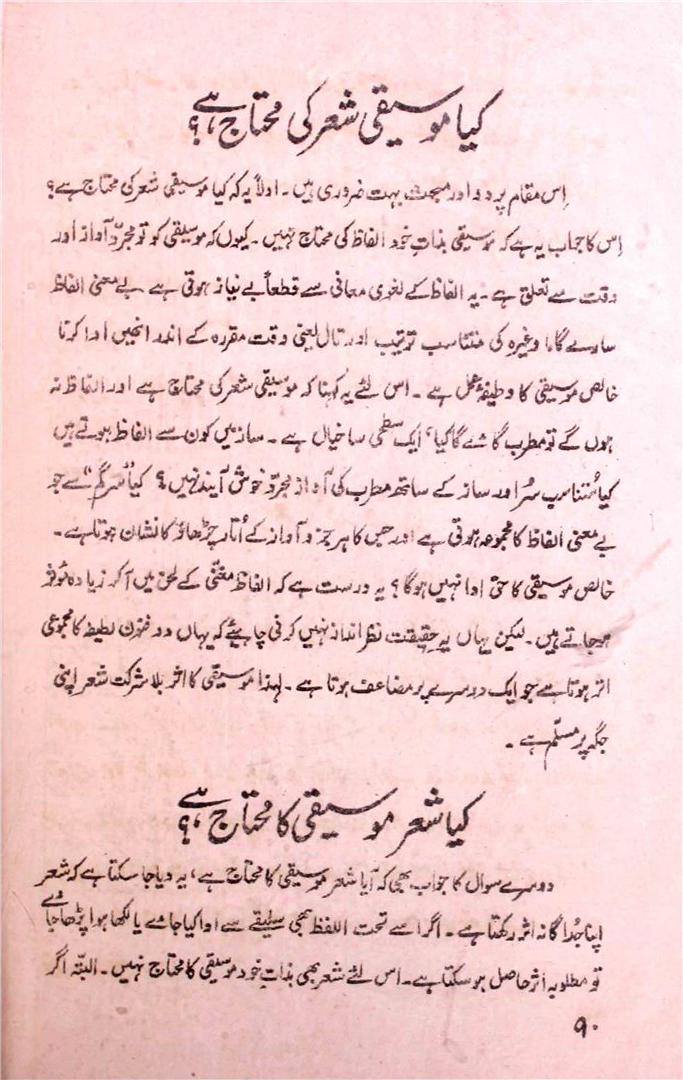 کیا موسیقی شعر کی محتاج ہے؟
اِس مقام پر دو اور مبحث بہت ضروری ہیں۔ اولاً یہ کہ کیا موسیقی شعر کی محتاج ہے؟
اِس کا جواب یہ ہے کہ موسیقی بذاتِ خود الفاظ کی محتاج نہیں۔ کیوں کہ موسیقی کو تو مجرّد آواز اور
وقت سے تعلق ہے۔ یہ الفاظ کے لغوی معانی سے قطعاً بے نیاز ہوتی ہے۔ بے معنی الفاظ
سارے گاما وغیرہ کی متناسب ترتیب اور تال یعنی وقت مقررہ کے اندر انھیں ادا کرنا
خالص موسیقی کا وظیفۂ عمل ہے۔ اس لئے یہ کہنا کہ موسیقی شعر کی محتاج ہے اور الفاظ نہ
ہوں گے تو مطرب گائے گا کیا، ایک سطحی سا خیال ہے۔ ساز میں کون سے الفاظ ہوتے ہیں
کیا مُتناسب سُر اور ساز کے ساتھ مطرب کی آواز مجرّد خوش آیند نہیں؟ کیا "سرگم" سے جو
بے معنی الفاظ کا مجموعہ ہوتی ہے اور جس کا ہر جزو آواز کے اُتار چڑھاؤ کا نشان ہوتا ہے۔
خالص موسیقی کا حق ادا نہیں ہوگا؟ یہ درست ہے کہ الفاظ مغنّی کے لحن میں آکر زیادہ مُوثر
ہو جاتے ہیں۔ لیکن یہاں یہ حقیقت نظر انداز نہیں کرنی چاہئے کہ یہاں دو فنونِ لطیفہ کا مجموعی
اثر ہوتا ہے جو ایک دوسرے پر مضاعف ہوتا ہے۔ لہٰذا موسیقی کا اثر بلا شرکت شعر اپنی
جگہ پر مسلّم ہے۔
کیا شعر موسیقی کا محتاج ہے؟
دوسرے سوال کا جواب بھی کہ آیا شعر موسیقی کا محتاج ہے، یہ دیا جا سکتا ہے کہ شعر
اپنا جُداگانہ اثر رکھتا ہے۔ اگر اسے تحت اللفظ بھی سلیقے سے ادا کیا جاے یا لکھا ہوا پڑھا جاے
تو مطلوبہ اثر حاصل ہو سکتا ہے۔ اس لئے شعر بھی بذاتِ خود موسیقی کا محتاج نہیں۔ البتّہ اگر
۹۰